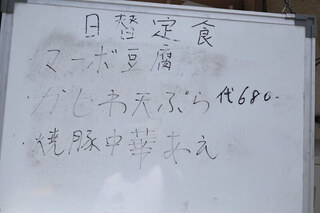 日替定食
マーボ豆腐
かしわ天ぷら 代680-
焼豚中華あえ